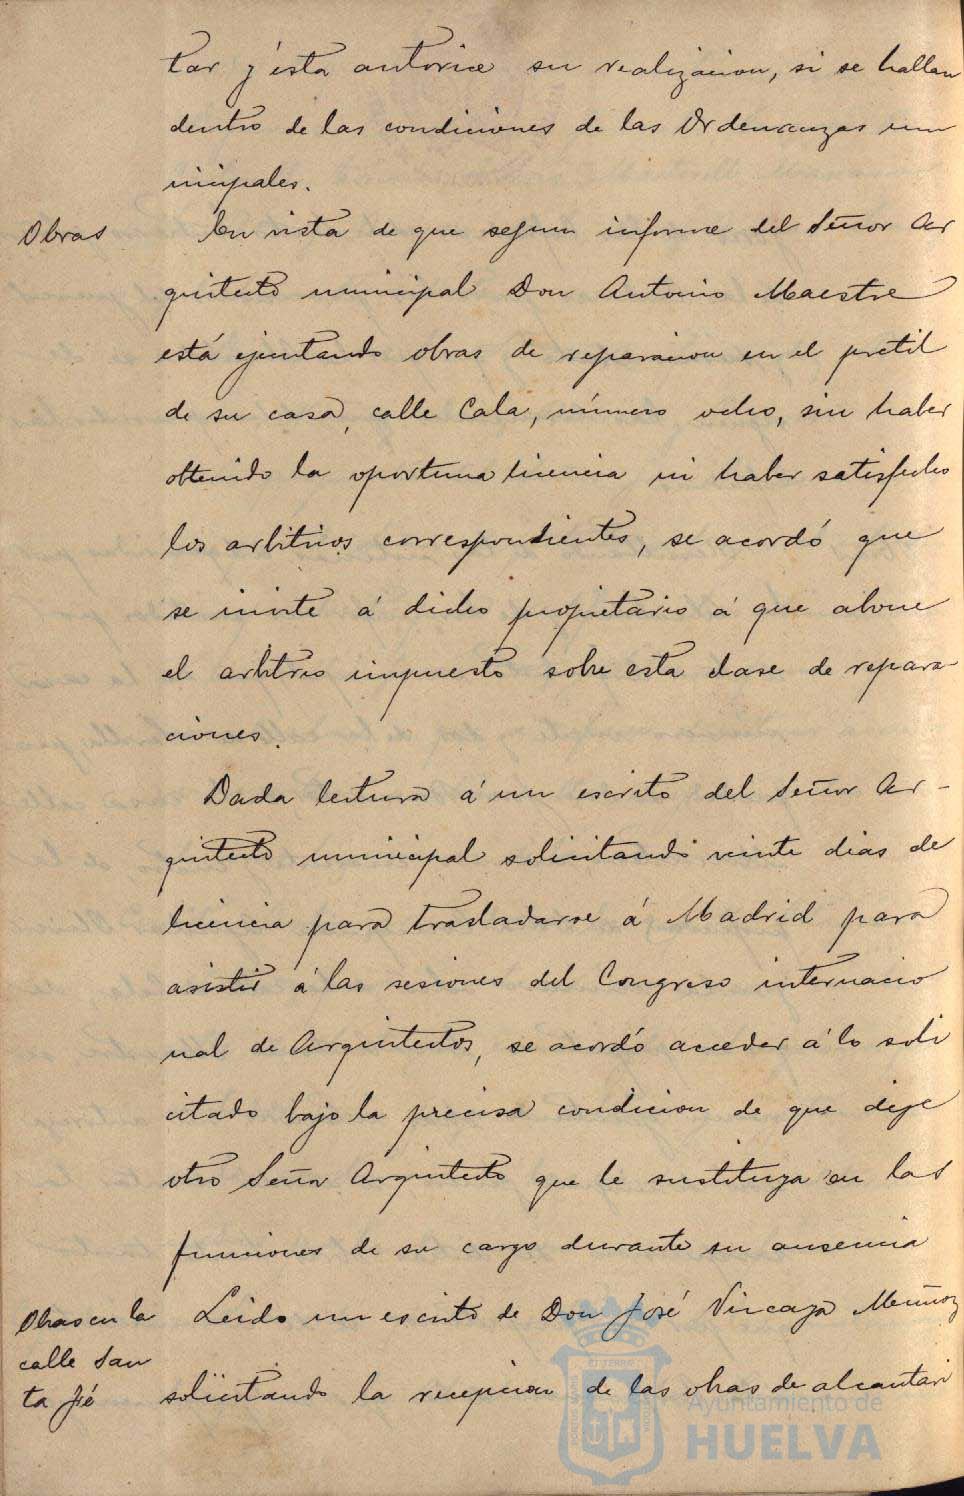 tar y ésta autorice su realizacion, si se hallan
dentro de las condiciones de las Ordenanzas mu
nicipales.
Obras
En vista de que segun informe del Señor Ar
quitecto municipal Don Antonio Maestre
está ejecutando obras de reparacion en el pretil
de su casa, calle Cala, número ocho, sin haber
obtenido la oportuna licencia ni haber satisfecho
los arbitrios correspondientes, se acordó que
se invite á dicho propietario á que abone
el arbitrio impuesto sobre esta clase de repara-
ciones.
Dada lectura á un escrito del Señor Ar-
quitecto municipal solicitando veinte dias de
licencia para trasladarse á Madrid para
asistir á las sesiones del Congreso internacio
nal de Arquitectos, se acordó acceder á lo soli
citado bajo la precisa condicion de que deje
otro Señor Arquitecto que le sustituya en las
funciones de su cargo durante su ausencia
Obras en la
calle San
ta Fé
Leido un escrito de Don José Vizcaya Muñoz
solicitando la recepcion de las obras de alcantari
Ayuntamiento de
HUELVA